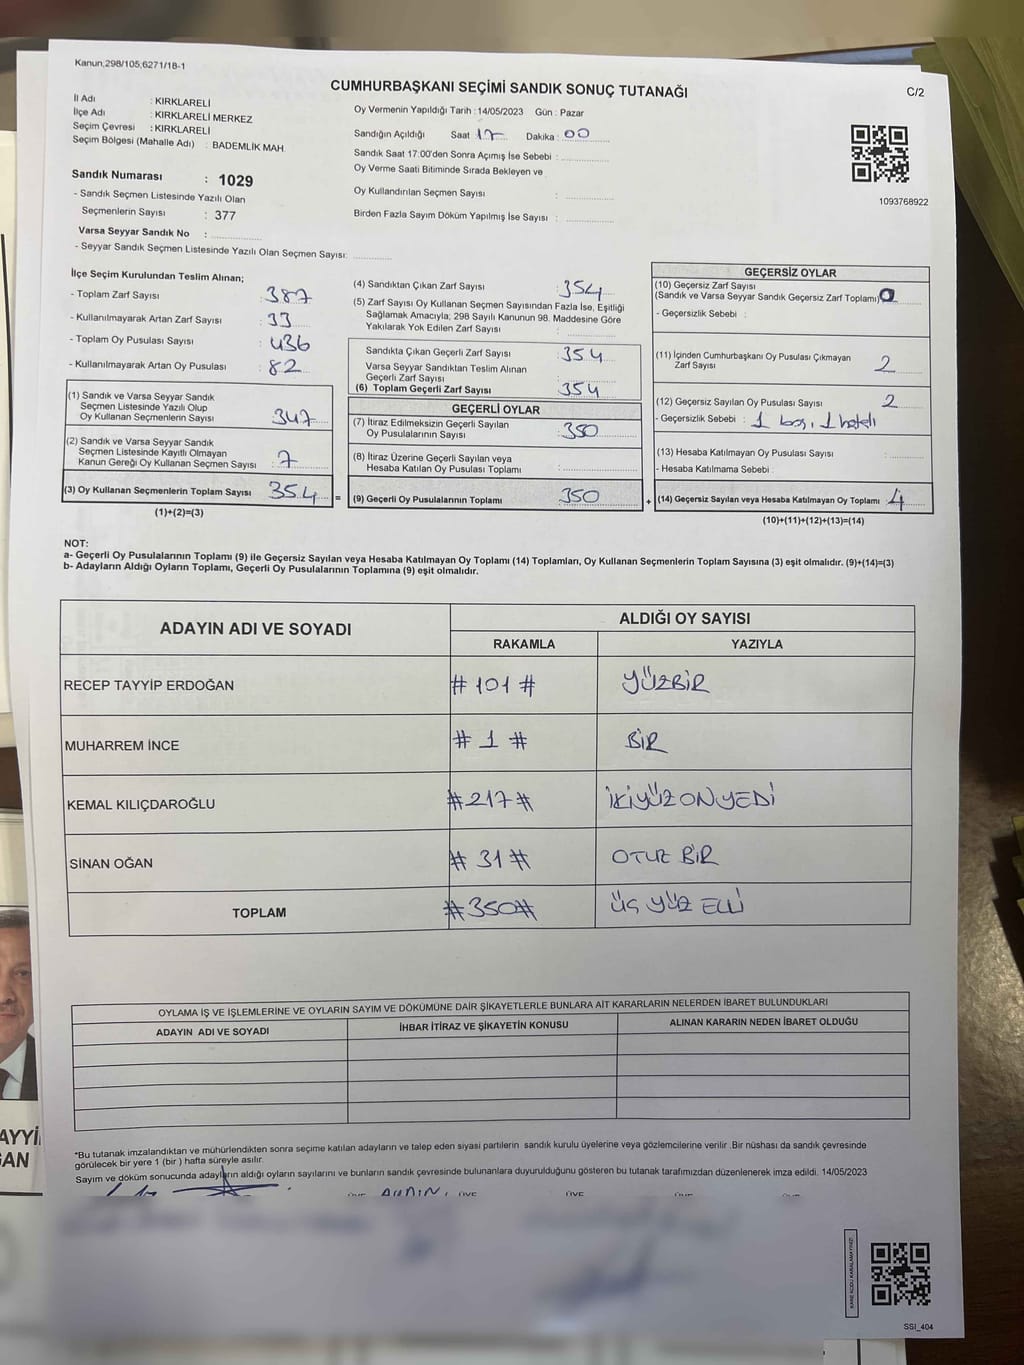 Kanun,298/105,6271/18-1
CUMHURBAŞKANI SEÇİMİ SANDIK SONUÇ TUTANAĞI
C/2
İl Adı : KIRKLARELİ
İlçe Adı : KIRKLARELİ MERKEZ
Seçim Çevresi : KIRKLARELİ
Seçim Bölgesi (Mahalle Adı) : BADEMLİK MAH.
Oy Vermenin Yapıldığı Tarih : 14/05/2023 Gün : Pazar
Sandığın Açıldığı Saat 17 Dakika : 00
Sandık Saat 17:00'den Sonra Açımış İse Sebebi :
Oy Verme Saati Bitiminde Sırada Bekleyen ve
Oy Kullandırılan Seçmen Sayısı :
Birden Fazla Sayım Döküm Yapılmış İse Sayısı :
1093768922
Sandık Numarası : 1029
- Sandık Seçmen Listesinde Yazılı Olan
Seçmenlerin Sayısı : 377
Varsa Seyyar Sandık No :
- Seyyar Sandık Seçmen Listesinde Yazılı Olan Seçmen Sayısı:
İlçe Seçim Kurulundan Teslim Alınan;
- Toplam Zarf Sayısı : 387
- Kullanılmayarak Artan Zarf Sayısı : 33
- Toplam Oy Pusulası Sayısı : 436
- Kullanılmayarak Artan Oy Pusulası : 82
(1) Sandık ve Varsa Seyyar Sandık
Seçmen Listesinde Yazılı Olup
Oy Kullanan Seçmenlerin Sayısı : 347
(2) Sandık ve Varsa Seyyar Sandık
Seçmen Listesinde Kayıtlı Olmayan
Kanun Gereği Oy Kullanan Seçmen Sayısı : 7
(3) Oy Kullanan Seçmenlerin Toplam Sayısı : 354 =
(1)+(2)=(3)
(4) Sandıktan Çıkan Zarf Sayısı : 354
(5) Zarf Sayısı Oy Kullanan Seçmen Sayısından Fazla İse, Eşitliği
Sağlamak Amacıyla; 298 Sayılı Kanunun 98. Maddesine Göre
Yakılarak Yok Edilen Zarf Sayısı :
Sandıkta Çıkan Geçerli Zarf Sayısı : 354
Varsa Seyyar Sandıktan Teslim Alınan
Geçerli Zarf Sayısı :
(6) Toplam Geçerli Zarf Sayısı : 354
GEÇERLİ OYLAR
(7) İtiraz Edilmeksizin Geçerli Sayılan
Oy Pusulalarının Sayısı : 350
(8) İtiraz Üzerine Geçerli Sayılan veya
Hesaba Katılan Oy Pusulası Toplamı :
(9) Geçerli Oy Pusulalarının Toplamı : 350 +
GEÇERSİZ OYLAR
(10) Geçersiz Zarf Sayısı
(Sandık ve Varsa Seyyar Sandık Geçersiz Zarf Toplamı) : 0
- Geçersizlik Sebebi :
(11) İçinden Cumhurbaşkanı Oy Pusulası Çıkmayan
Zarf Sayısı : 2
(12) Geçersiz Sayılan Oy Pusulası Sayısı : 2
- Geçersizlik Sebebi : 1 boş, 1 hatalı
(13) Hesaba Katılmayan Oy Pusulası Sayısı :
- Hesaba Katılmama Sebebi :
(14) Geçersiz Sayılan veya Hesaba Katılmayan Oy Toplamı : 4
(10)+(11)+(12)+(13)=(14)
NOT:
a- Geçerli Oy Pusulalarının Toplamı (9) ile Geçersiz Sayılan veya Hesaba Katılmayan Oy Toplamı (14) Toplamları, Oy Kullanan Seçmenlerin Toplam Sayısına (3) eşit olmalıdır. (9)+(14)=(3)
b- Adayların Aldığı Oyların Toplamı, Geçerli Oy Pusulalarının Toplamına (9) eşit olmalıdır.
ADAYIN ADI VE SOYADI
ALDIĞI OY SAYISI
RAKAMLA YAZIYLA
RECEP TAYYİP ERDOĞAN # 101 # YÜZBİR
MUHARREM İNCE # 1 # BİR
KEMAL KILIÇDAROĞLU # 217 # İKİYÜZONYEDİ
SİNAN OĞAN # 31 # OTUZ BİR
TOPLAM # 350 # ÜÇ YÜZ ELLİ
OYLAMA İŞ VE İŞLEMLERİNE VE OYLARIN SAYIM VE DÖKÜMÜNE DAİR ŞİKAYETLERLE BUNLARA AİT KARARLARIN NELERDEN İBARET BULUNDUKLARI
ADAYIN ADI VE SOYADI İHBAR İTİRAZ VE ŞİKAYETİN KONUSU ALINAN KARARIN NEDEN İBARET OLDUĞU
*Bu tutanak imzalandıktan ve mühürlendikten sonra seçime katılan adayların ve talep eden siyasi partilerin sandık kurulu üyelerine veya gözlemcilerine verilir .Bir nüshası da sandık çevresinde
görülecek bir yere 1 (bir ) hafta süreyle asılır.
Sayım ve döküm sonucunda adayların aldığı oyların sayılarını ve bunların sandık çevresinde bulunanlara duyurulduğunu gösteren bu tutanak tarafımızdan düzenlenerek imza edildi. 14/05/2023
SSI_404